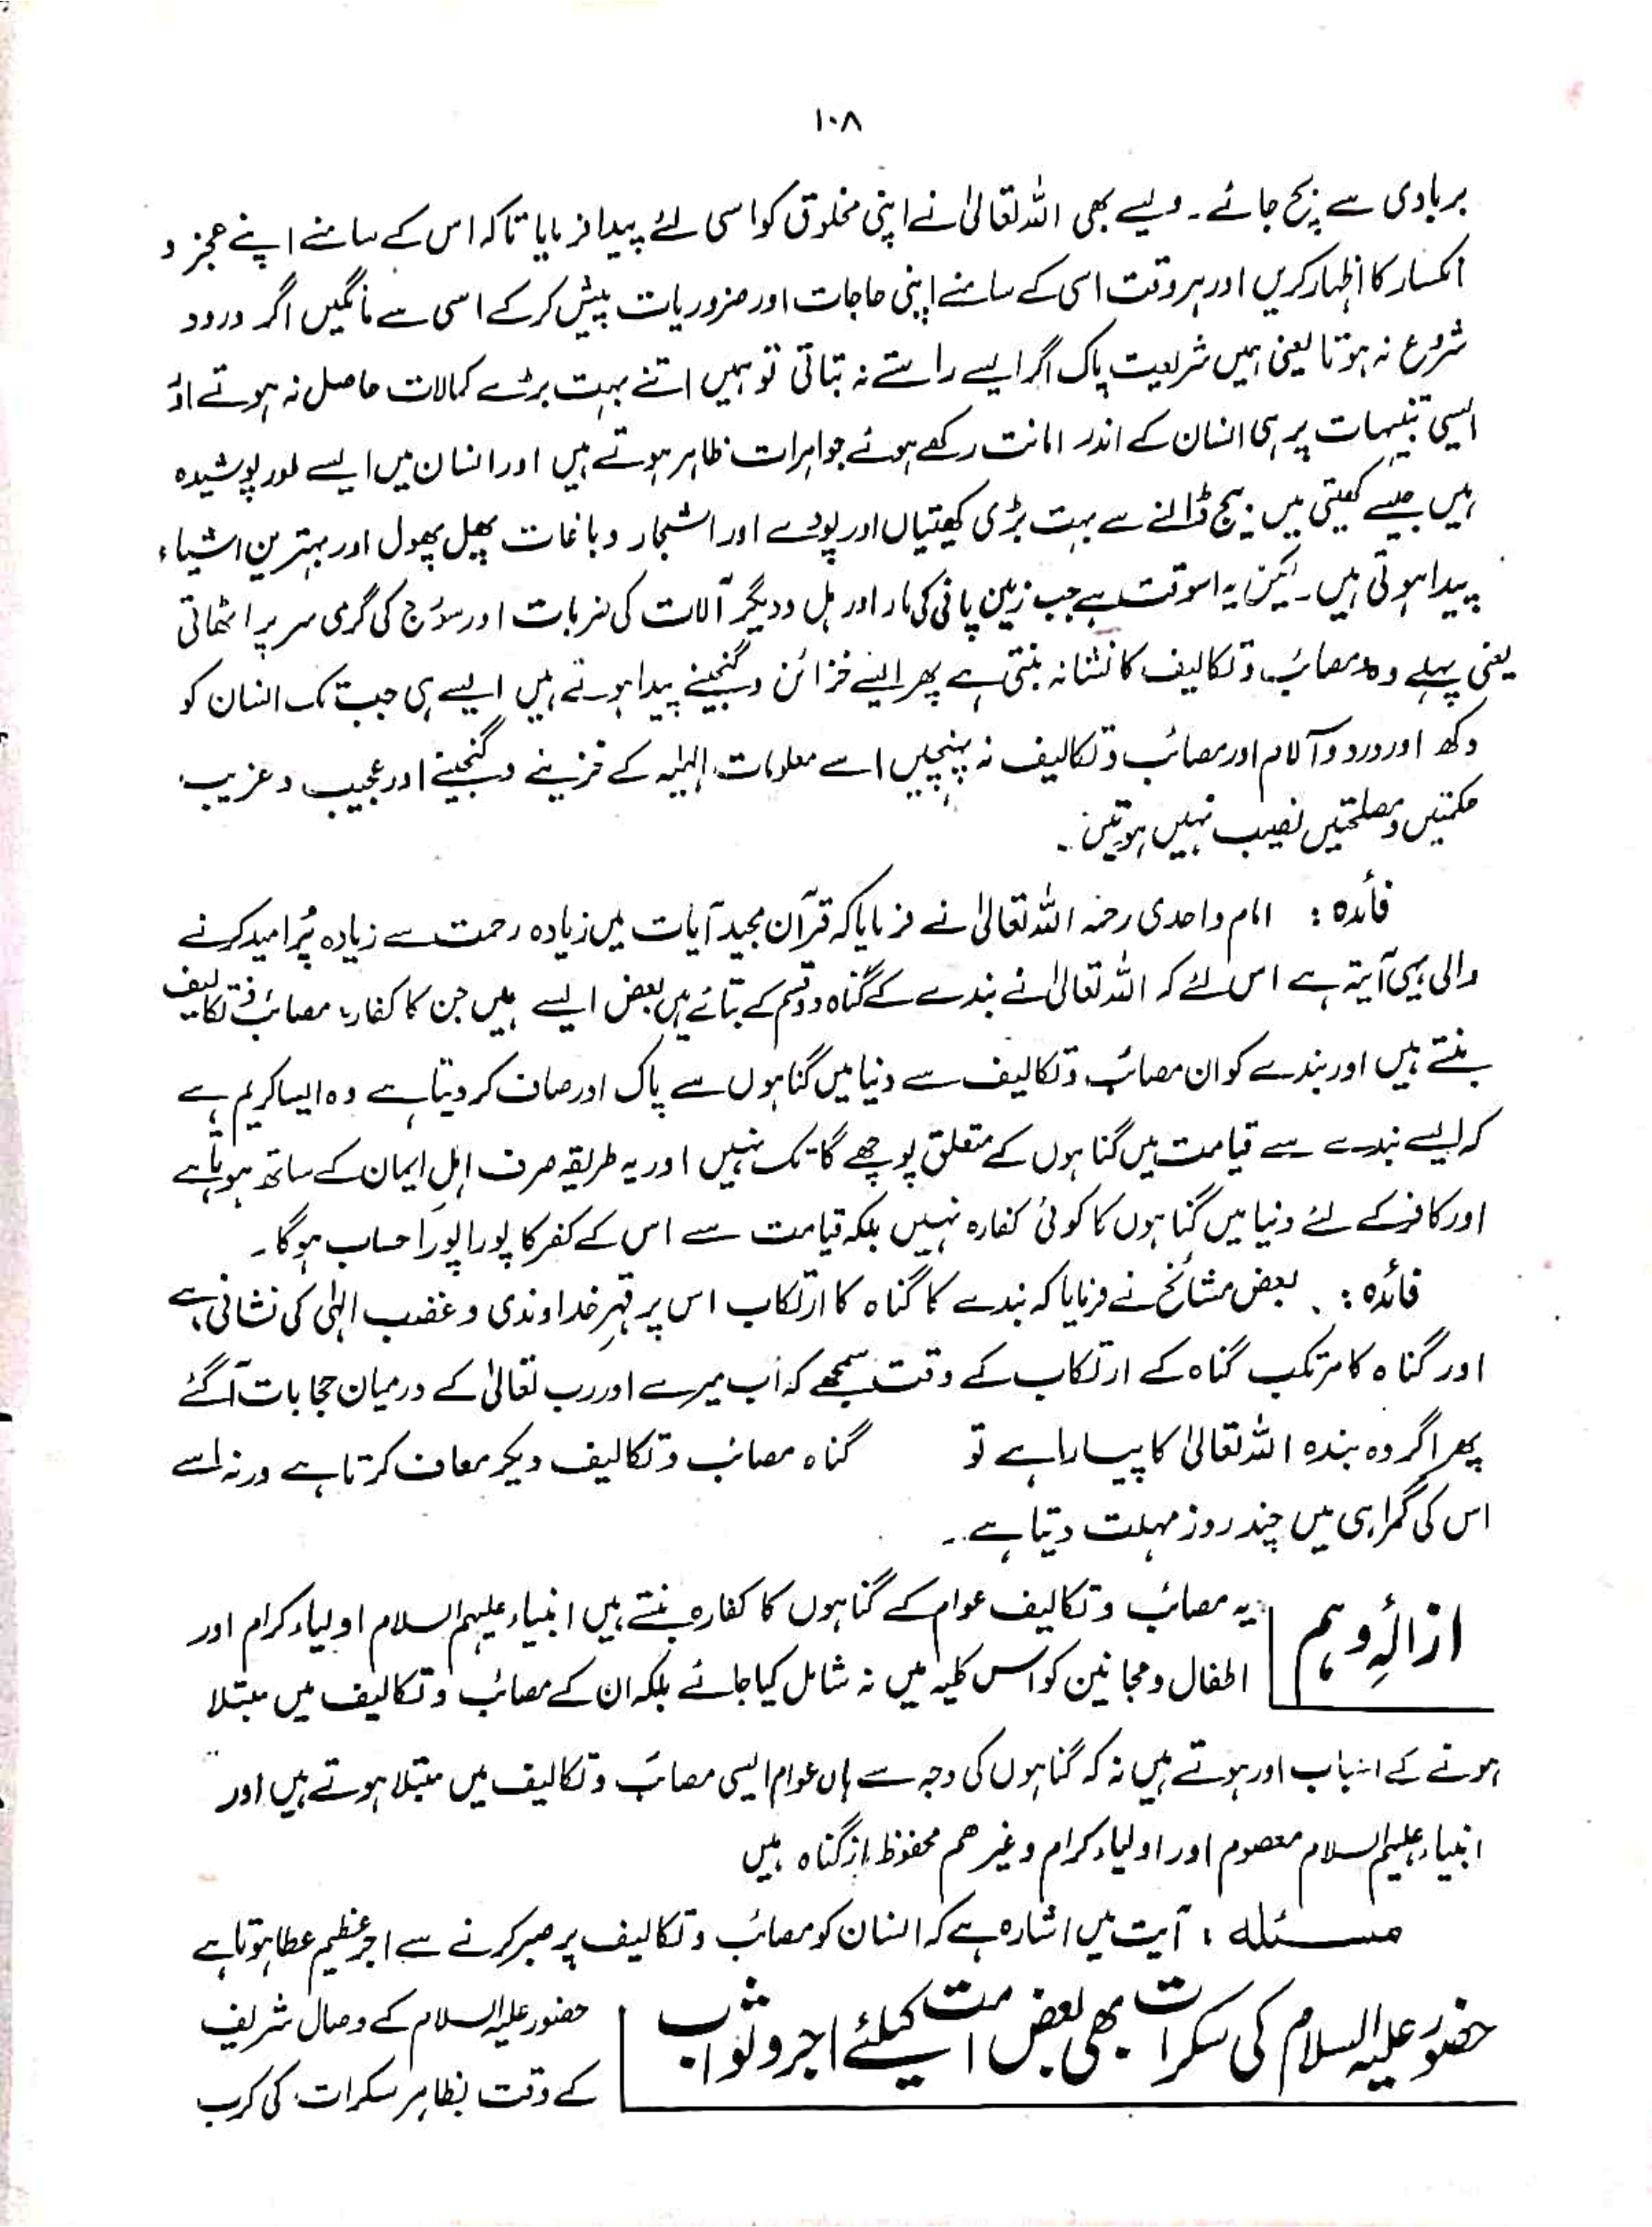 ۱۰۸
بربادی سے بچ جائے۔ ویسے بھی اللہ تعالیٰ نے اپنی مخلوق کو اسی لئے پیدا فرمایا تاکہ اس کے سامنے اپنے عجز و
انکسار کا اظہار کریں اور ہر وقت اسی کے سامنے اپنی حاجات اور ضروریات پیش کر کے اسی سے مانگیں اگر درود
شروع نہ ہوتا یعنی ہمیں شریعت پاک اگر ایسے راستے نہ بتاتی تو ہمیں اتنے بہت بڑے کمالات حاصل نہ ہوتے اور
ایسی تنبیہات پر ہی انسان کے اندر امانت رکھے ہوئے جواہرات ظاہر ہوتے ہیں اور انسان میں ایسے طور پوشیدہ
ہیں جیسے کھیتی میں بیج ڈالنے سے بہت بڑی کھیتیاں اور پودے اور اشجار و باغات پھل پھول اور بہترین اشیاء
پیدا ہوتی ہیں۔ لیکن یہ اسوقت ہے جب زمین پانی کی مار اور ہل و دیگر آلات کی ضربات اور سورج کی گرمی سر پر اٹھاتی
یعنی پہلے وہ مصائب و تکالیف کا نشانہ بنتی ہے پھر ایسے خزائن و گنجینے پیدا ہوتے ہیں ایسے ہی جب تک انسان کو
دکھ اور درد و آلام اور مصائب و تکالیف نہ پہنچیں اسے معلومات الہٰیہ کے خزینے و گنجینے اور عجیب و غریب
حکمتیں و مصلحتیں نصیب نہیں ہوتیں۔
فائدہ : امام واحدی رحمہ اللہ تعالیٰ نے فرمایا کہ قرآن مجید آیات میں زیادہ رحمت سے زیادہ پُر امید کرنے
والی یہی آیۃ ہے اس لئے کہ اللہ تعالیٰ نے بندے کے گناہ دو قسم کے بتائے ہیں بعض ایسے ہیں جن کا کفارہ مصائب و تکالیف
بنتے ہیں اور بندے کو ان مصائب و تکالیف سے دنیا میں گناہوں سے پاک اور صاف کر دیتا ہے وہ ایسا کریم ہے
کہ ایسے بندے سے قیامت میں گناہوں کے متعلق پوچھے گا تک نہیں اور یہ طریقہ صرف اہلِ ایمان کے ساتھ ہوتا ہے
اور کافر کے لئے دنیا میں گناہوں کا کوئی کفارہ نہیں بلکہ قیامت سے اس کے کفر کا پورا پورا حساب ہوگا۔
فائدہ : بعض مشائخ نے فرمایا کہ بندے کا گناہ کا ارتکاب اس پر قہرِ خداوندی و غضب الہٰی کی نشانی ہے
اور گناہ کا مرتکب گناہ کے ارتکاب کے وقت سمجھے کہ اب میرے اور رب تعالیٰ کے درمیان حجابات آگئے
پھر اگر وہ بندہ اللہ تعالیٰ کا پیارا ہے تو گناہ مصائب و تکالیف دیکر معاف کرتا ہے ورنہ اسے
اس کی گمراہی میں چند روز مہلت دیتا ہے۔
ازالۂ وہم
یہ مصائب و تکالیف عوام کے گناہوں کا کفارہ بنتے ہیں انبیاء علیہم السلام اولیاء کرام اور
اطفال و مجانین کو اس کلیہ میں نہ شامل کیا جائے بلکہ ان کے مصائب و تکالیف میں مبتلا
ہونے کے اسباب اور ہوتے ہیں نہ کہ گناہوں کی وجہ سے ہاں عوام ایسی مصائب و تکالیف میں مبتلا ہوتے ہیں اور
انبیاء علیہم السلام معصوم اور اولیاء کرام وغیرھم محفوظ از گناہ ہیں
مسئلہ : آیت میں اشارہ ہے کہ انسان کو مصائب و تکالیف پر صبر کرنے سے اجر عظیم عطا ہوتا ہے
حضور علیہ السلام کی سکرات بھی بعض امت کیلئے اجر و ثواب
حضور علیہ السلام کے وصال شریف
کے وقت بظاہر سکرات کی کرب